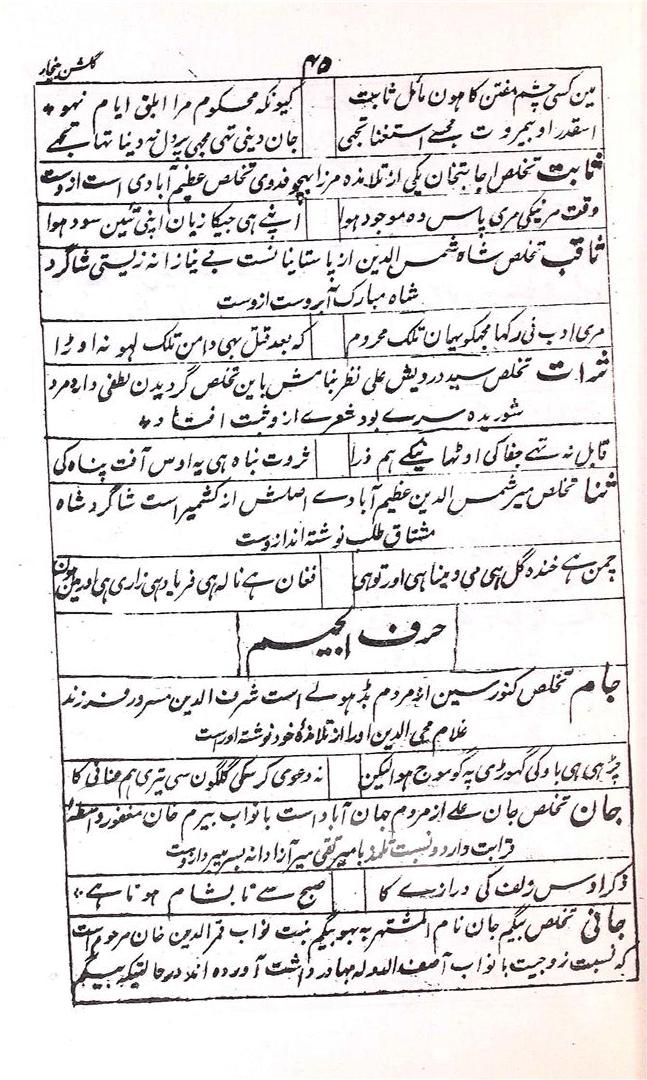 گلشن بیخار
۴۵
مین کسی چشم مفتن کا ہون مائل ثابت کیونکہ محکوم مرا ابلق ایام نہو
اسقدر او بیمروت مجھسے استغنا تجہی جان دینی تہی مجہی پر دل نہ دینا تہا تجھے
ثابت تخلص اجابتخان یکی از تلامذہ مرزا بہچو فدوی تخلص عظیم آبادی است ازوست
وقت مرنیکی مری پاس وہ موجود ہوا اپنے ہی جیکا زیان اپنی تئین سود ہوا
ثاقب تخلص شاہ شمس الدین از پاستانیانست بے نیازانہ زیستی شاگرد
شاہ مبارک آبروست ازوست
مری ادب نی رکہا مجہکو یہان تلک محروم کہ بعد قتل بہی دامن تلک لہو نہ اوڑا
ثبات تخلص سید درویش علی نظر بنامش باین تخلص گردیدن لطفی دارد مرد
شوریدہ سرے بود شعرے ازو ثبت افتاد
قابل نہ تہے جفا کی اوٹھا نیکے ہم ذرا ثروت نباہ ہی یہ اوس آفت پناہ کی
ثنا تخلص میر شمس الدین عظیم آبادے اصلش از کشمیر است شاگرد شاہ
مشتاق طلب نوشتہ اند ازوست
چمن ہے خندہ گل ہی می و مینا ہی اور تو ہی فغان ہے نالہ ہی فریاد ہی زاری ہی اور مین ہون
حرف الجیم
جام تخلص کنور سین از مردم بڈہولے است شرف الدین مسرور فرزند
غلام محی الدین اورا از تلامذۂ خود نوشتہ اوراست
چڑہی ہی باو کی گہوڑی پہ گو موج ہوا لیکن نہ دعوی کر سکی گلگون سی تیری ہم عنانی کا
جان تخلص جان علے از مردم جہان آباد است با نواب بیرم خان مغفور
قرابت دارد و نسبت تلمذ با میر تقی میر آزادانہ بسر میبرد اوراست
ذکر اوس زلف کی درازے کا صبح سے تا بشام ہوتا ہے
جانی تخلص بیگم جان نام المشتہر بہ بہو بیگم بنت نواب قمر الدین خان مرحوم است
کہ نسبت زوجیت با نواب آصف الدولہ بہادر داشت آوردہ اند در حالتیکہ بیگم